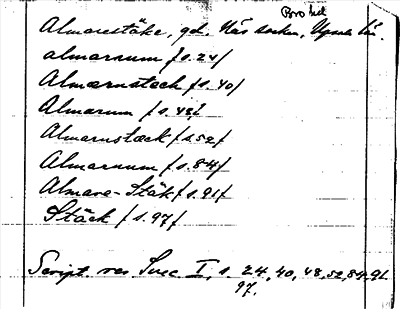 Bro hd
Almarestäke, gd. Näs socken, Upsala län.
almarnum /s. 24/
Almærnstech /s. 40/
Almarum /s. 48/
Almarnstæck /s. 52/
Almarnum /s. 84/
Almare-Stäk /s. 91/
Stäck /s. 97/
Script. rer Suec I, s. 24, 40, 48, 52, 84, 91
97.